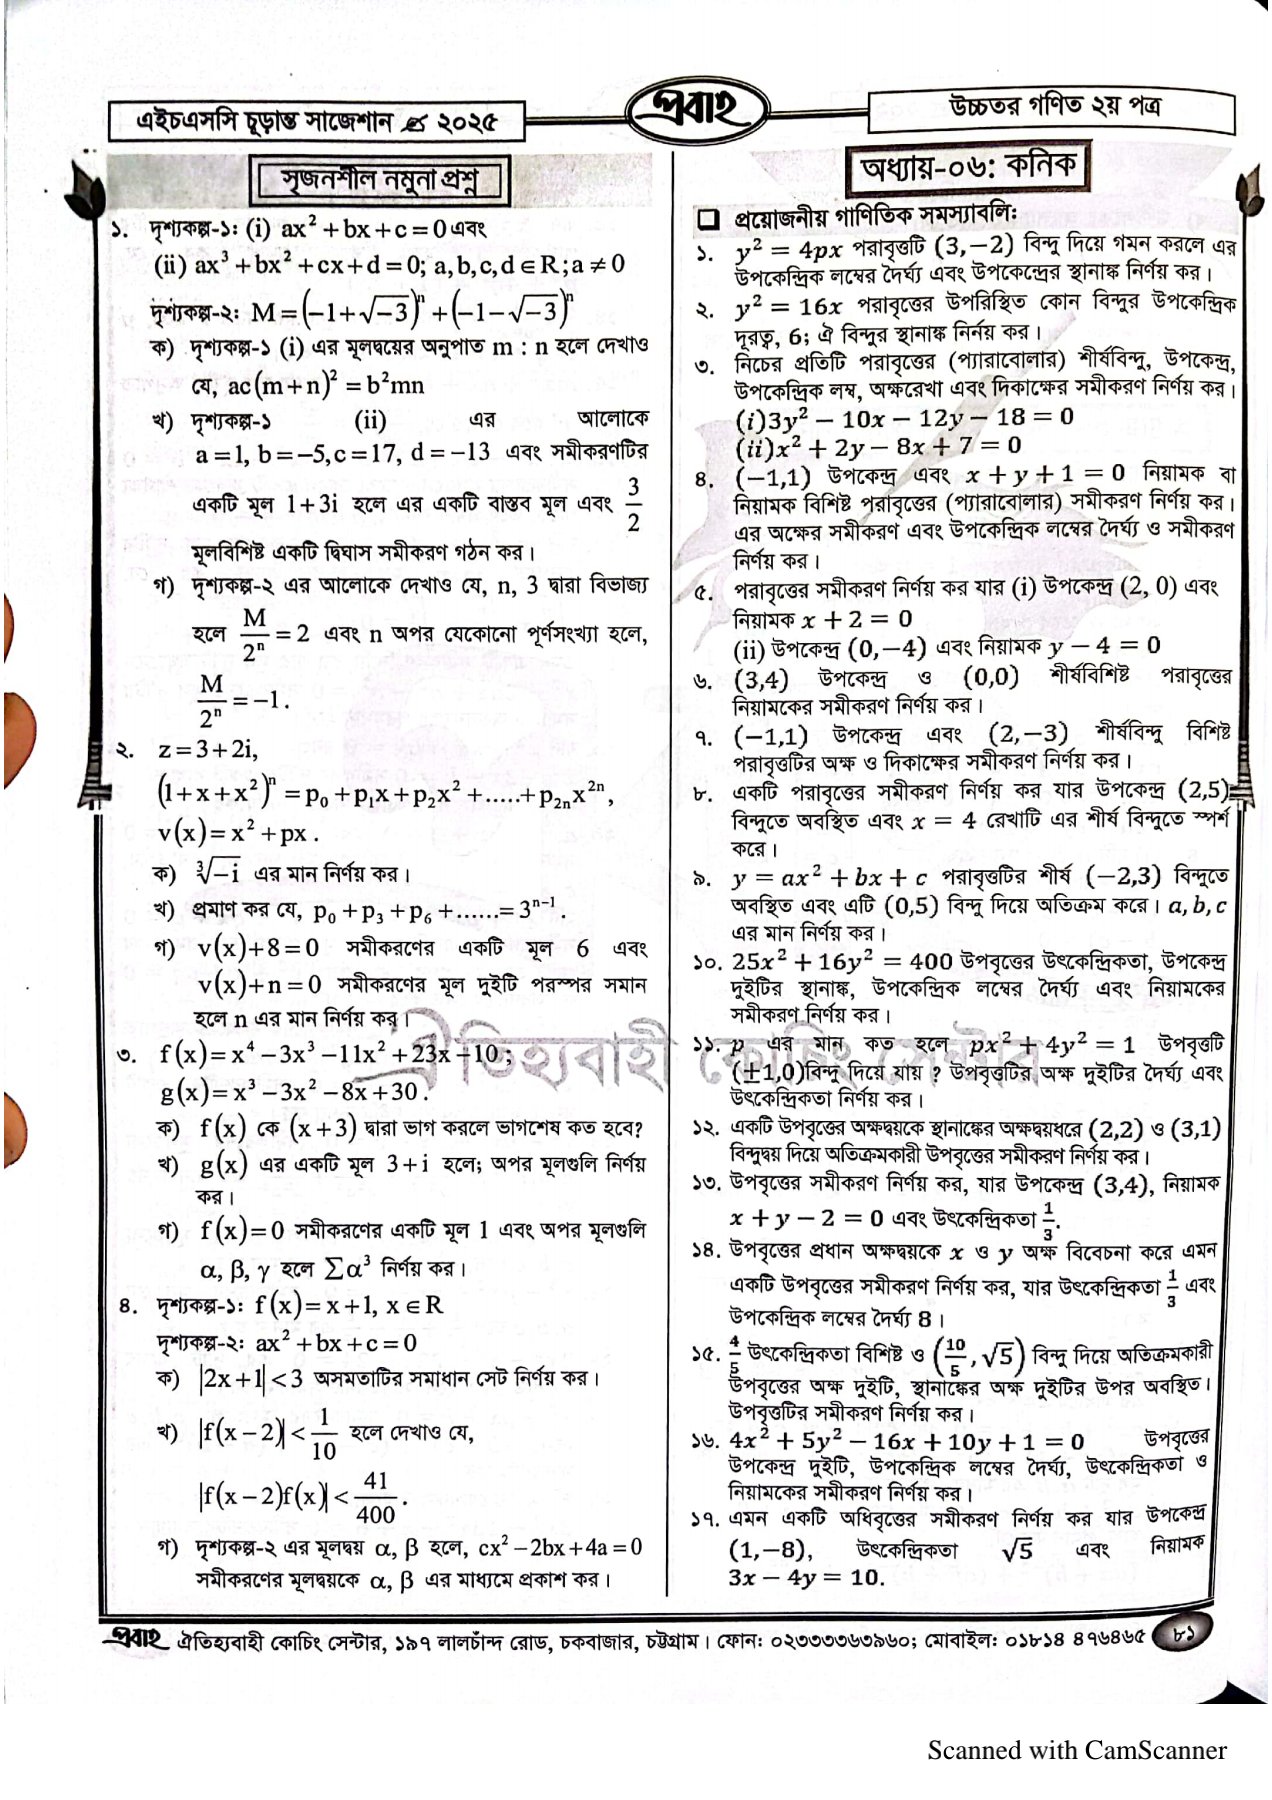 এইচএসসি চূড়ান্ত সাজেশান ✍ ২০২৫
প্রবাহ
উচ্চতর গণিত ২য় পত্র
সৃজনশীল নমুনা প্রশ্ন
১. দৃশ্যকল্প-১: (i) ax² + bx + c = 0 এবং
(ii) ax³ + bx² + cx + d = 0; a, b, c, d ∈ R; a ≠ 0
দৃশ্যকল্প-২: M = (−1 + √−3)ⁿ + (−1 − √−3)ⁿ
ক) দৃশ্যকল্প-১ (i) এর মূলদ্বয়ের অনুপাত m : n হলে দেখাও
যে, ac(m + n)² = b²mn
খ) দৃশ্যকল্প-১ (ii) এর আলোকে
a = 1, b = −5, c = 17, d = −13 এবং সমীকরণটির
একটি মূল 1 + 3i হলে এর একটি বাস্তব মূল এবং 3/2
মূলবিশিষ্ট একটি দ্বিঘাস সমীকরণ গঠন কর।
গ) দৃশ্যকল্প-২ এর আলোকে দেখাও যে, n, 3 দ্বারা বিভাজ্য
হলে M/2ⁿ = 2 এবং n অপর যেকোনো পূর্ণসংখ্যা হলে,
M/2ⁿ = −1.
২. z = 3 + 2i,
(1 + x + x²)ⁿ = p₀ + p₁x + p₂x² + ..... + p₂ₙx²ⁿ,
v(x) = x² + px .
ক) ∛−i এর মান নির্ণয় কর।
খ) প্রমাণ কর যে, p₀ + p₃ + p₆ + ...... = 3ⁿ⁻¹.
গ) v(x) + 8 = 0 সমীকরণের একটি মূল 6 এবং
v(x) + n = 0 সমীকরণের মূল দুইটি পরস্পর সমান
হলে n এর মান নির্ণয় কর।
৩. f(x) = x⁴ − 3x³ − 11x² + 23x − 10 ;
g(x) = x³ − 3x² − 8x + 30 .
ক) f(x) কে (x + 3) দ্বারা ভাগ করলে ভাগশেষ কত হবে?
খ) g(x) এর একটি মূল 3 + i হলে; অপর মূলগুলি নির্ণয়
কর।
গ) f(x) = 0 সমীকরণের একটি মূল 1 এবং অপর মূলগুলি
α, β, γ হলে ∑α³ নির্ণয় কর।
৪. দৃশ্যকল্প-১: f(x) = x + 1, x ∈ R
দৃশ্যকল্প-২: ax² + bx + c = 0
ক) |2x + 1| < 3 অসমতাটির সমাধান সেট নির্ণয় কর।
খ) |f(x − 2)| < 1/10 হলে দেখাও যে,
|f(x − 2)f(x)| < 41/400 .
গ) দৃশ্যকল্প-২ এর মূলদ্বয় α, β হলে, cx² − 2bx + 4a = 0
সমীকরণের মূলদ্বয়কে α, β এর মাধ্যমে প্রকাশ কর।
অধ্যায়-০৬: কনিক
❑ প্রয়োজনীয় গাণিতিক সমস্যাবলি:
১. y² = 4px পরাবৃত্তটি (3, −2) বিন্দু দিয়ে গমন করলে এর
উপকেন্দ্রিক লম্বের দৈর্ঘ্য এবং উপকেন্দ্রের স্থানাঙ্ক নির্ণয় কর।
২. y² = 16x পরাবৃত্তের উপরিস্থিত কোন বিন্দুর উপকেন্দ্রিক
দূরত্ব, 6; ঐ বিন্দুর স্থানাঙ্ক নির্নয় কর।
৩. নিচের প্রতিটি পরাবৃত্তের (প্যারাবোলার) শীর্ষবিন্দু, উপকেন্দ্র,
উপকেন্দ্রিক লম্ব, অক্ষরেখা এবং দিকাক্ষের সমীকরণ নির্ণয় কর।
(i)3y² − 10x − 12y − 18 = 0
(ii)x² + 2y − 8x + 7 = 0
৪. (−1,1) উপকেন্দ্র এবং x + y + 1 = 0 নিয়ামক বা
নিয়ামক বিশিষ্ট পরাবৃত্তের (প্যারাবোলার) সমীকরণ নির্ণয় কর।
এর অক্ষের সমীকরণ এবং উপকেন্দ্রিক লম্বের দৈর্ঘ্য ও সমীকরণ
নির্ণয় কর।
৫. পরাবৃত্তের সমীকরণ নির্ণয় কর যার (i) উপকেন্দ্র (2, 0) এবং
নিয়ামক x + 2 = 0
(ii) উপকেন্দ্র (0, −4) এবং নিয়ামক y − 4 = 0
৬. (3,4) উপকেন্দ্র ও (0,0) শীর্ষবিশিষ্ট পরাবৃত্তের
নিয়ামকের সমীকরণ নির্ণয় কর।
৭. (−1,1) উপকেন্দ্র এবং (2, −3) শীর্ষবিন্দু বিশিষ্ট
পরাবৃত্তটির অক্ষ ও দিকাক্ষের সমীকরণ নির্ণয় কর।
৮. একটি পরাবৃত্তের সমীকরণ নির্ণয় কর যার উপকেন্দ্র (2,5)
বিন্দুতে অবস্থিত এবং x = 4 রেখাটি এর শীর্ষ বিন্দুতে স্পর্শ
করে।
৯. y = ax² + bx + c পরাবৃত্তটির শীর্ষ (−2,3) বিন্দুতে
অবস্থিত এবং এটি (0,5) বিন্দু দিয়ে অতিক্রম করে। a, b, c
এর মান নির্ণয় কর।
১০. 25x² + 16y² = 400 উপবৃত্তের উৎকেন্দ্রিকতা, উপকেন্দ্র
দুইটির স্থানাঙ্ক, উপকেন্দ্রিক লম্বের দৈর্ঘ্য এবং নিয়ামকের
সমীকরণ নির্ণয় কর।
১১. p এর মান কত হলে px² + 4y² = 1 উপবৃত্তটি
(±1,0)বিন্দু দিয়ে যায় ? উপবৃত্তটির অক্ষ দুইটির দৈর্ঘ্য এবং
উৎকেন্দ্রিকতা নির্ণয় কর।
১২. একটি উপবৃত্তের অক্ষদ্বয়কে স্থানাঙ্কের অক্ষদ্বয়ধরে (2,2) ও (3,1)
বিন্দুদ্বয় দিয়ে অতিক্রমকারী উপবৃত্তের সমীকরণ নির্ণয় কর।
১৩. উপবৃত্তের সমীকরণ নির্ণয় কর, যার উপকেন্দ্র (3,4), নিয়ামক
x + y − 2 = 0 এবং উৎকেন্দ্রিকতা 1/3.
১৪. উপবৃত্তের প্রধান অক্ষদ্বয়কে x ও y অক্ষ বিবেচনা করে এমন
একটি উপবৃত্তের সমীকরণ নির্ণয় কর, যার উৎকেন্দ্রিকতা 1/3 এবং
উপকেন্দ্রিক লম্বের দৈর্ঘ্য 8।
১৫. 4/5 উৎকেন্দ্রিকতা বিশিষ্ট ও (10/5, √5) বিন্দু দিয়ে অতিক্রমকারী
উপবৃত্তের অক্ষ দুইটি, স্থানাঙ্কের অক্ষ দুইটির উপর অবস্থিত।
উপবৃত্তটির সমীকরণ নির্ণয় কর।
১৬. 4x² + 5y² − 16x + 10y + 1 = 0 উপবৃত্তের
উপকেন্দ্র দুইটি, উপকেন্দ্রিক লম্বের দৈর্ঘ্য, উৎকেন্দ্রিকতা ও
নিয়ামকের সমীকরণ নির্ণয় কর।
১৭. এমন একটি অধিবৃত্তের সমীকরণ নির্ণয় কর যার উপকেন্দ্র
(1, −8), উৎকেন্দ্রিকতা √5 এবং নিয়ামক
3x − 4y = 10.
ঐতিহ্যবাহী কোচিং সেন্টার
প্রবাহ ঐতিহ্যবাহী কোচিং সেন্টার, ১৯৭ লালচাঁন্দ রোড, চকবাজার, চট্টগ্রাম। ফোন: ০২৩৩৩৩৬৩৯৬০; মোবাইল: ০১৮১৪ ৪৭৬৪৬৫ ৮১
Scanned with CamScanner